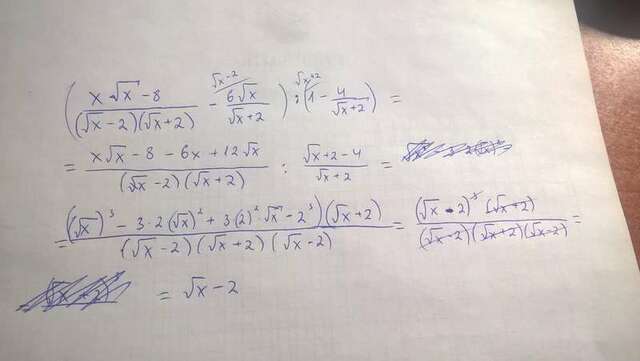 (x·√x-8/((√x-2)(√x+2)) - 6√x/(√x+2) ^√x-2) : (1 - 4/(√x+2) ^√x+2) =
= (x√x-8-6x+12√x)/((√x-2)(√x+2)) : (√x+2-4)/(√x+2) =
= ((√x)³-3·2(√x)²+3(2)²·√x-2³)(√x+2)/((√x-2)(√x+2)(√x-2)) = (√x-2)³(√x+2)/((√x-2)(√x+2)(√x-2)) =
= √x-2